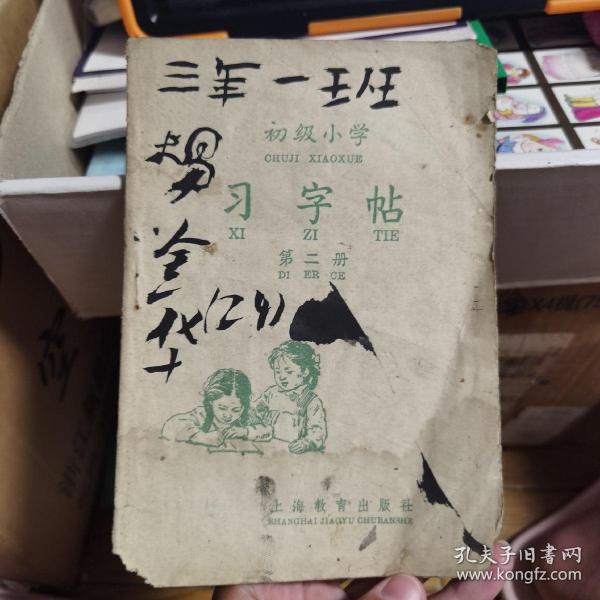 三年一班
初级小学
CHUJI XIAOXUE
习字帖
XI ZI TIE
第二册
DI ER CE
华(24)
上海教育出版社
SHANGHAI JIAOYU CHUBANSHE
孔夫子旧书网
www.kongfz.com